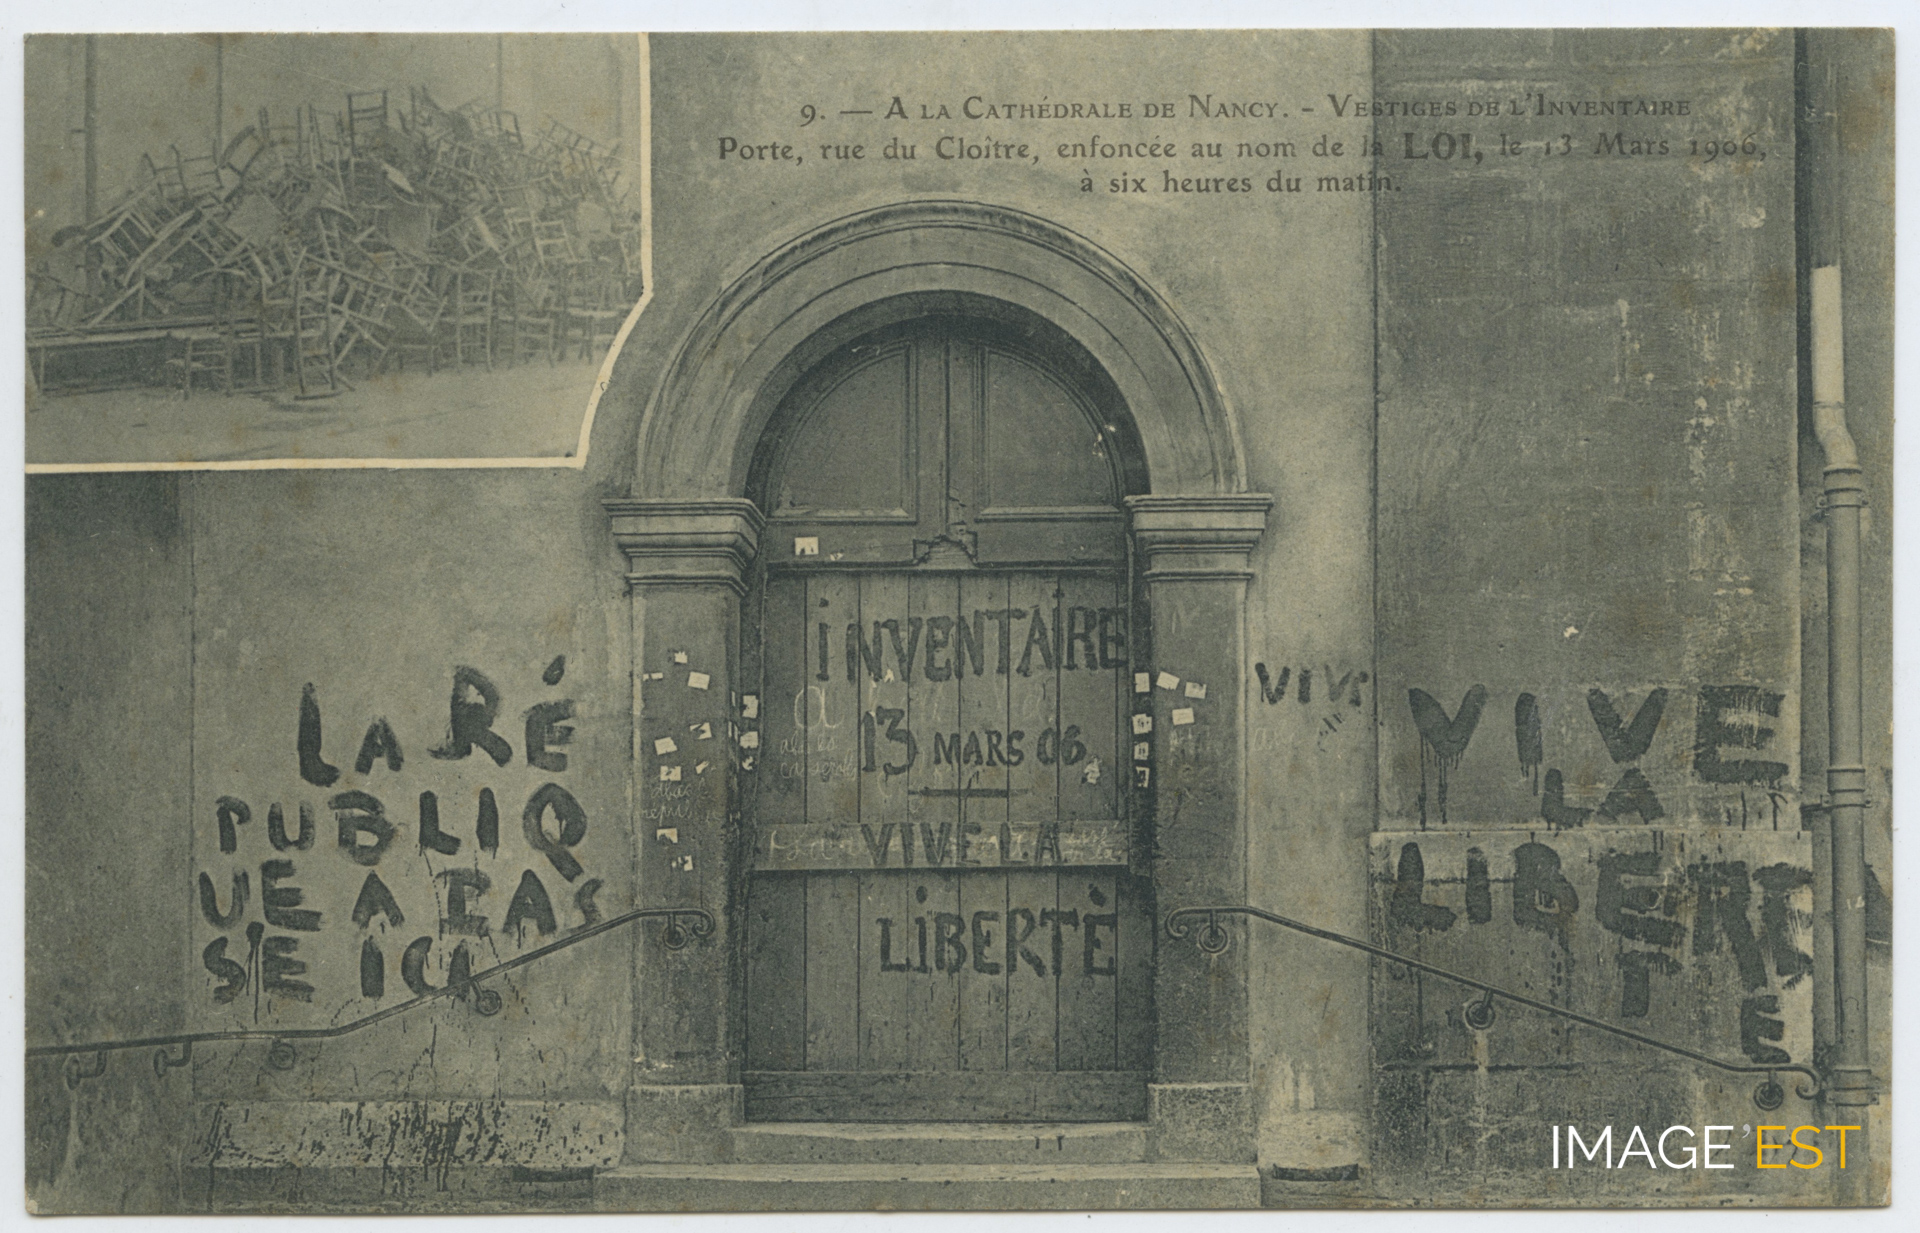 9. — A LA CATHÉDRALE DE NANCY. - VESTIGES DE L'INVENTAIRE
Porte, rue du Cloître, enfoncée au nom de la LOI, le 13 Mars 1906,
à six heures du matin.
LA RÉ
PUBLIQ
UE A PAS
SE ICI
INVENTAIRE
13 MARS 06
VIVE LA
LIBERTÉ
VIVE
VIVE
LA
LIBERTE
T
E
IMAGE'EST